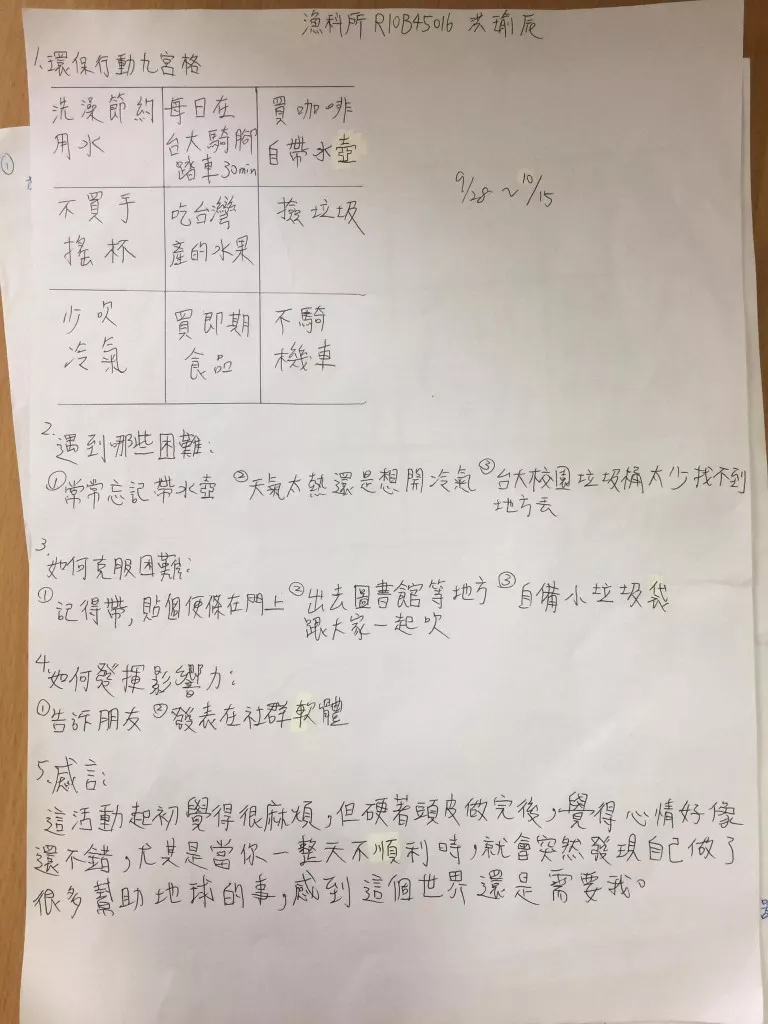 漁科所 R10B45016 洪瑜辰
1. 環保行動九宮格
洗澡節約
用水
每日在
台大騎腳
踏車30min
買咖啡
自帶水壺
9/28 ~ 10/15
不買手
搖杯
吃台灣
產的水果
撿垃圾
少吹
冷氣
買即期
食品
不騎
機車
2. 遇到哪些困難:
①常常忘記帶水壺 ②天氣太熱還是想開冷氣 ③台大校園垃圾桶太少找不到
地方丟
3. 如何克服困難:
①記得帶,貼個便條在門上 ②出去圖書館等地方 ③自備小垃圾袋
跟大家一起吹
4. 如何發揮影響力:
①告訴朋友 ②發表在社群軟體
5. 感言:
這活動起初覺得很麻煩,但硬著頭皮做完後,覺得心情好像
還不錯,尤其是當你一整天不順利時,就會突然發現自己做了
很多幫助地球的事,感到這個世界還是需要我。
①